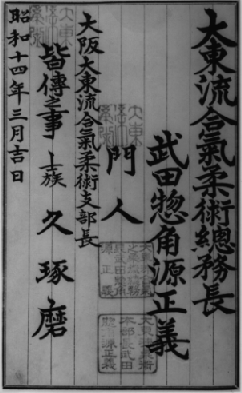 大東流合氣柔術總務長
武田惣角源正義
門人
大阪大東流合氣柔術支部長
皆傳之事 士族 久琢磨
昭和十四年三月吉日